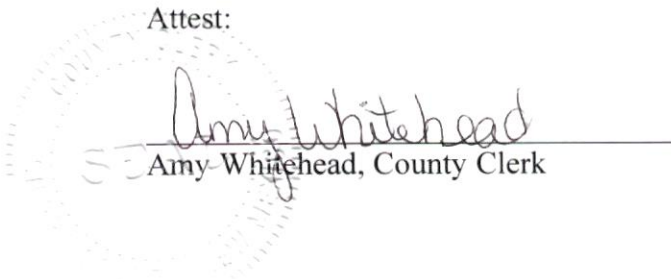 Attest:
Amy Whitehead
Amy Whitehead, County Clerk